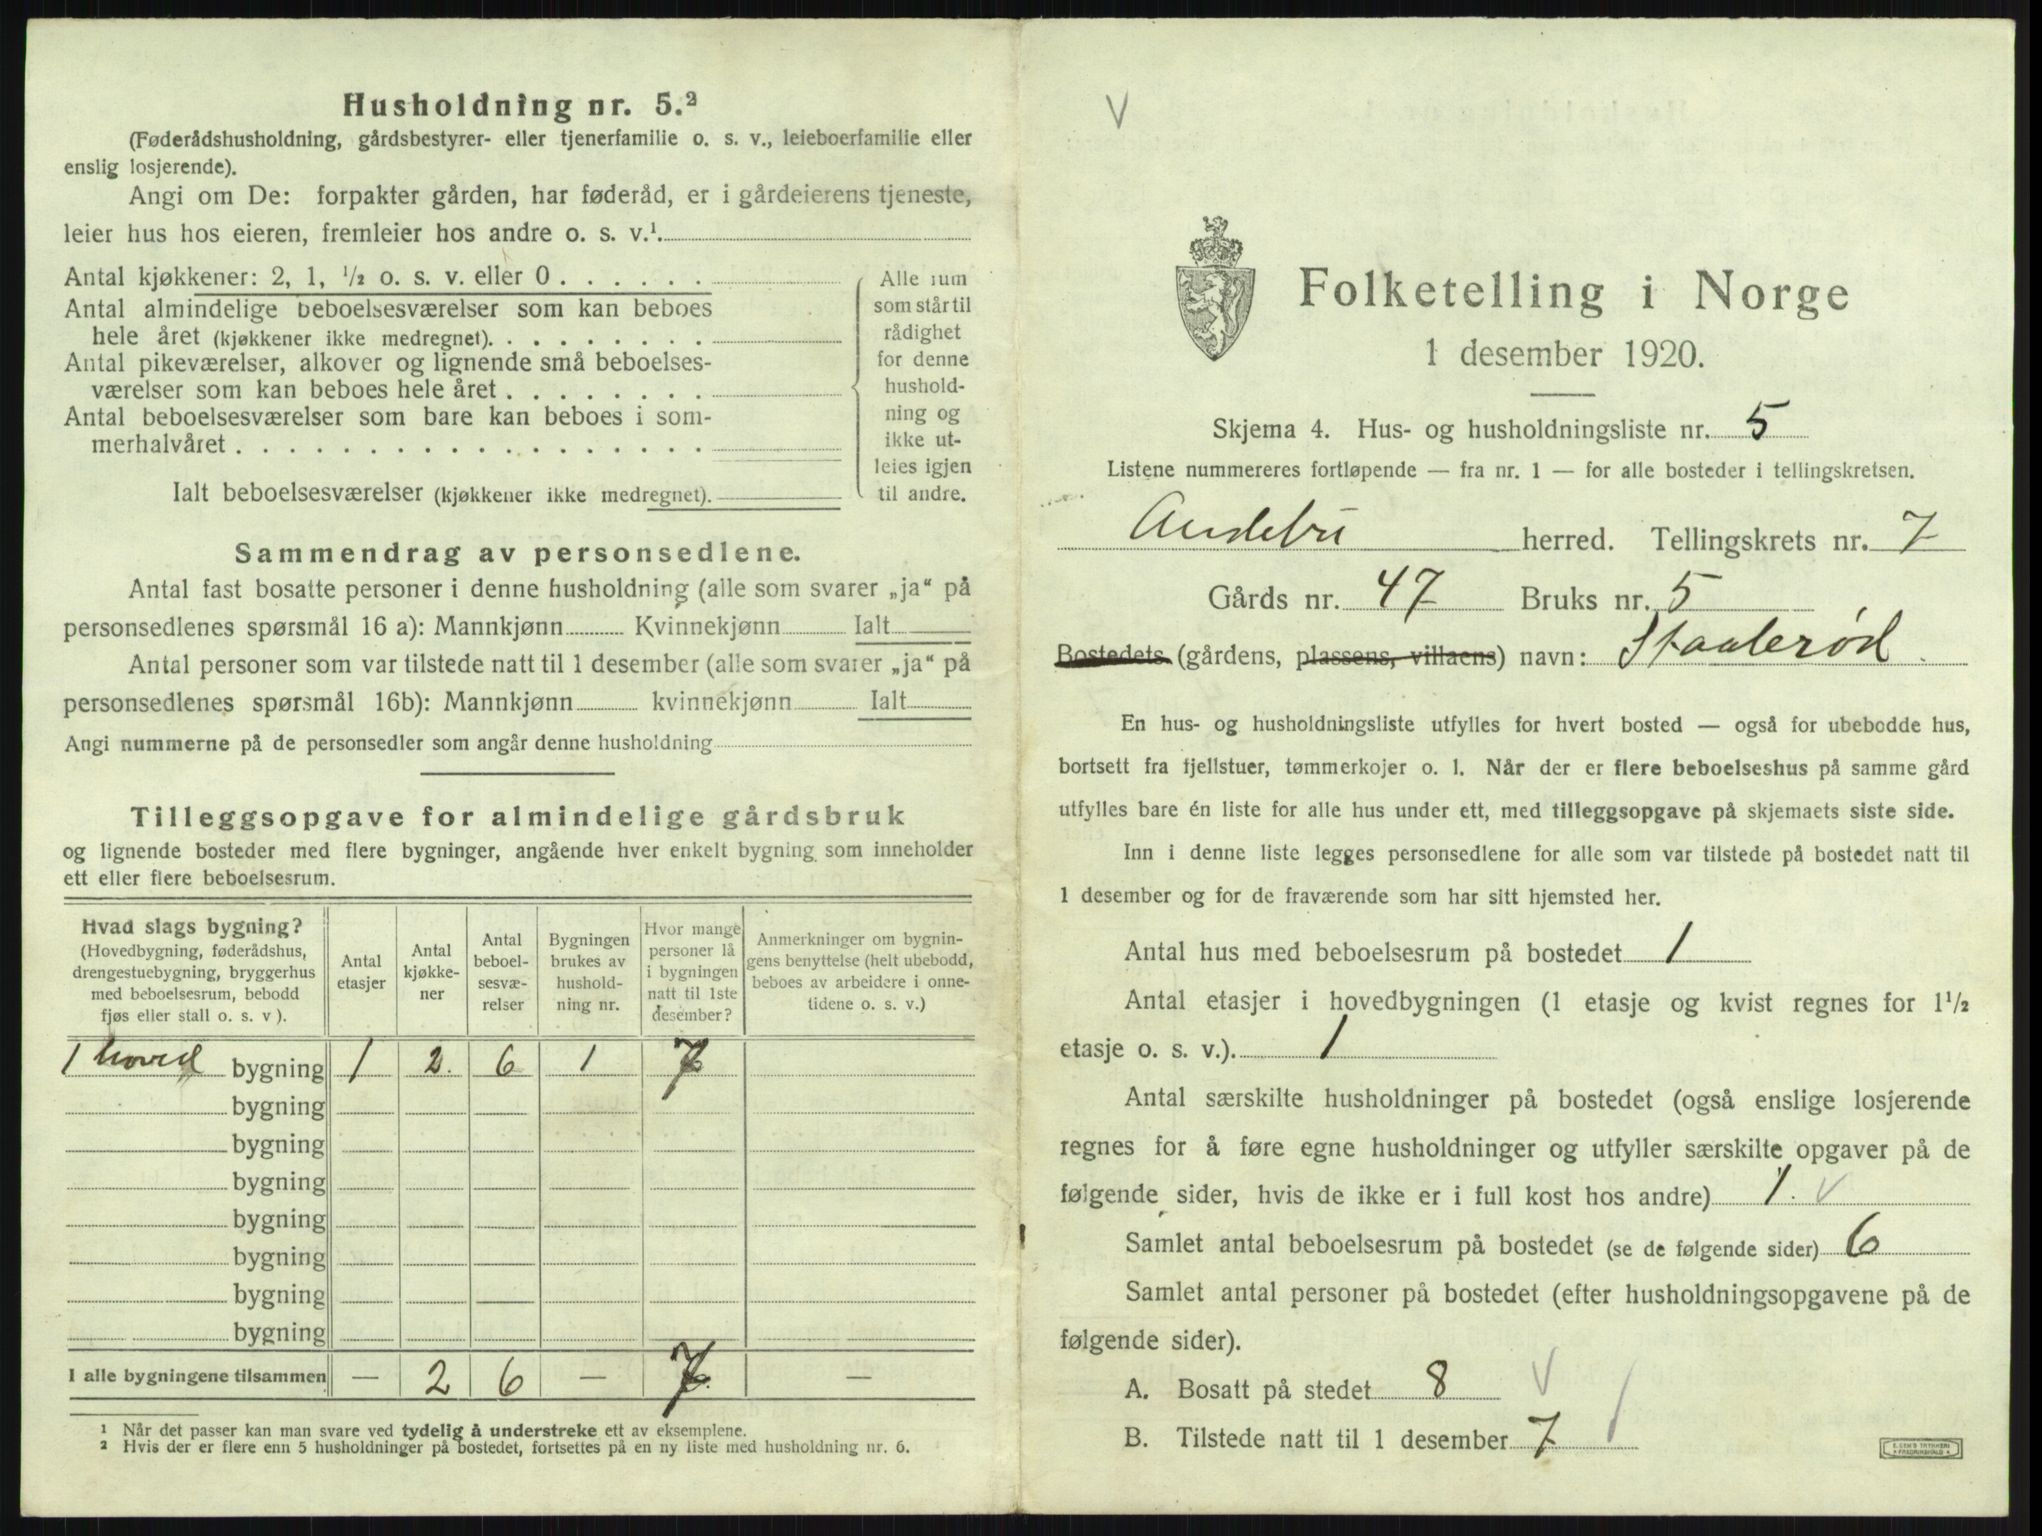 Husholdning nr. 5.²
(Føderådshusholdning, gårdsbestyrer- eller tjenerfamilie o. s. v., leieboerfamilie eller
enslig losjerende).
Angi om De: forpakter gården, har føderåd, er i gårdeierens tjeneste,
leier hus hos eieren, fremleier hos andre o. s. v.¹.
Antal kjøkkener: 2, 1, ½ o. s. v. eller 0 . . . . . .
Antal almindelige beboelsesværelser som kan beboes
hele året (kjøkkener ikke medregnet). . . . . . . . .
Antal pikeværelser, alkover og lignende små beboelses-
værelser som kan beboes hele året . . . . . . . .
Antal beboelsesværelser som bare kan beboes i som-
merhalvåret . . . . . . . . . . . . . . . . . .
Ialt beboelsesværelser (kjøkkener ikke medregnet).
Alle rum
som står til
rådighet
for denne
hushold-
ning og
ikke ut-
leies igjen
til andre.
Sammendrag av personsedlene.
Antal fast bosatte personer i denne husholdning (alle som svarer „ja“ på
personsedlenes spørsmål 16 a): Mannkjønn Kvinnekjønn Ialt
Antal personer som var tilstede natt til 1 desember (alle som svarer „ja“ på
personsedlenes spørsmål 16b): Mannkjønn kvinnekjønn Ialt
Angi nummerne på de personsedler som angår denne husholdning
Tilleggsopgave for almindelige gårdsbruk
og lignende bosteder med flere bygninger, angående hver enkelt bygning som inneholder
ett eller flere beboelsesrum.
Hvad slags bygning?
(Hovedbygning, føderådshus,
drengestuebygning, bryggerhus
med beboelsesrum, bebodd
fjøs eller stall o. s. v ).
Antal
etasjer
Antal
kjøkke-
ner
Antal
beboel-
sesvæ-
relser
Bygningen
brukes av
hushold-
ning nr.
Hvor mange
personer lå
i bygningen
natt til 1ste
desember?
Anmerkninger om bygnin-
gens benyttelse (helt ubebodd,
beboes av arbeidere i onne-
tidene o. s. v.)
1 hoved bygning 1 2. 6 1 7
bygning
bygning
bygning
bygning
bygning
bygning
bygning
I alle bygningene tilsammen — 2 6 — 7. —
¹ Når det passer kan man svare ved tydelig å understreke ett av eksemplene.
² Hvis der er flere enn 5 husholdninger på bostedet, fortsettes på en ny liste med husholdning nr. 6.
V
Folketelling i Norge
1 desember 1920.
Skjema 4. Hus- og husholdningsliste nr. 5
Listene nummereres fortløpende — fra nr. 1 — for alle bosteder i tellingskretsen.
Andebu herred. Tellingskrets nr. 7
Gårds nr. 47 Bruks nr. 5
Bostedets (gårdens, plassens, villaens) navn: Staalerød
En hus- og husholdningsliste utfylles for hvert bosted — også for ubebodde hus,
bortsett fra fjellstuer, tømmerkojer o. l. Når der er flere beboelseshus på samme gård
utfylles bare én liste for alle hus under ett, med tilleggsopgave på skjemaets siste side.
Inn i denne liste legges personsedlene for alle som var tilstede på bostedet natt til
1 desember og for de fraværende som har sitt hjemsted her.
Antal hus med beboelsesrum på bostedet 1
Antal etasjer i hovedbygningen (1 etasje og kvist regnes for 1½
etasje o. s. v.). 1
Antal særskilte husholdninger på bostedet (også enslige losjerende
regnes for å føre egne husholdninger og utfyller særskilte opgaver på de
følgende sider, hvis de ikke er i full kost hos andre) 1. v
Samlet antal beboelsesrum på bostedet (se de følgende sider) 6
Samlet antal personer på bostedet (efter husholdningsopgavene på de
følgende sider).
A. Bosatt på stedet 8 V
B. Tilstede natt til 1 desember 7